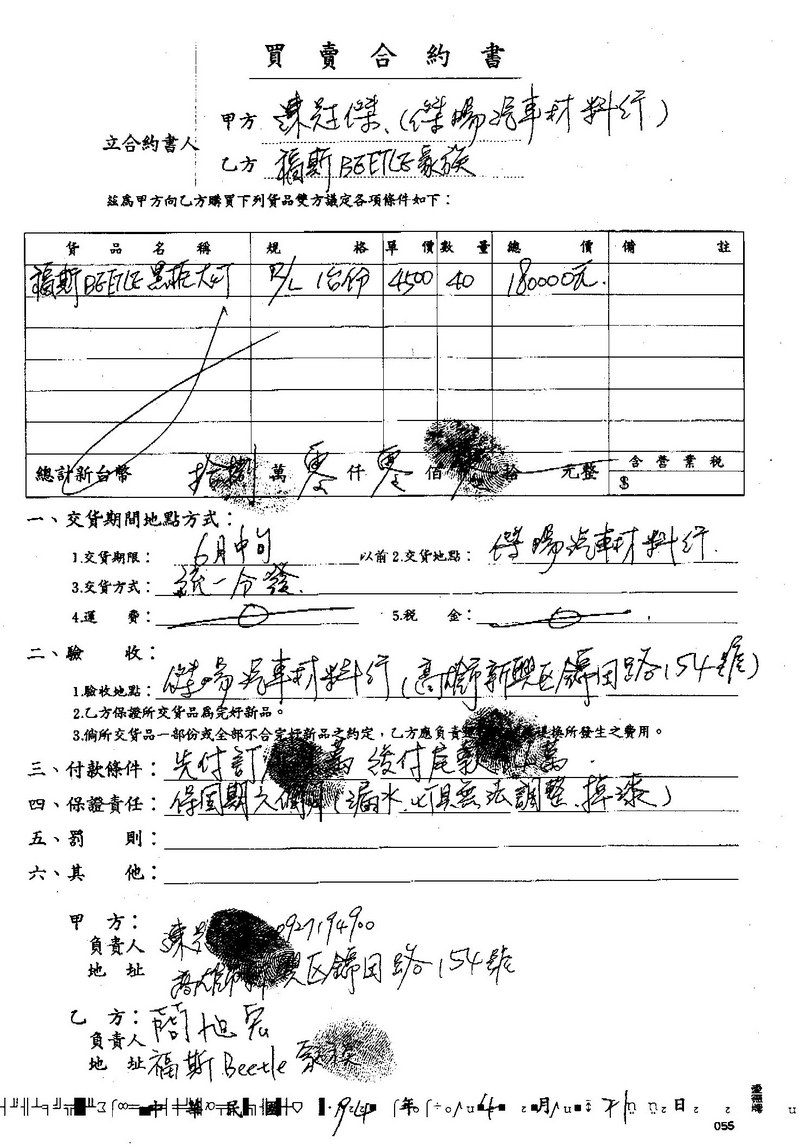 買賣合約書
立合約書人
甲方 陳冠傑、(傑暘汽車材料行)
乙方 福斯BEETLE家族
茲為甲方向乙方購買下列貨品雙方議定各項條件如下：
貨品名稱 規格 單價 數量 總價 備註
福斯BEETLE黑框大灯 R/L 1台份 4500 40 180000元.
總計新台幣 拾捌 萬 零 仟 零 佰 零 拾 元整 含營業稅
$
一、交貨期間地點方式：
1.交貨期限： 6月中旬 以前 2.交貨地點： 傑暘汽車材料行.
3.交貨方式： 統一分發.
4.運費： 5.稅金：
二、驗收：
1.驗收地點： 傑暘汽車材料行(高雄市新興区錦田路154號)
2.乙方保證所交貨品為完好新品。
3.倘所交貨品一部份或全部不合完好新品之約定，乙方應負責 退換所發生之費用。
三、付款條件： 先付訂 萬 後付尾款 萬.
四、保證責任： 保固期六個月(漏水、灯具無法調整、掉漆)
五、罰則：
六、其他：
甲方：
負責人 陳 0927194900
地址 高雄市新興区錦田路154號
乙方：
負責人 簡旭宏
地址 福斯Beetle家族
中華民國 94 年 4 月 21 日
愛德牌
055